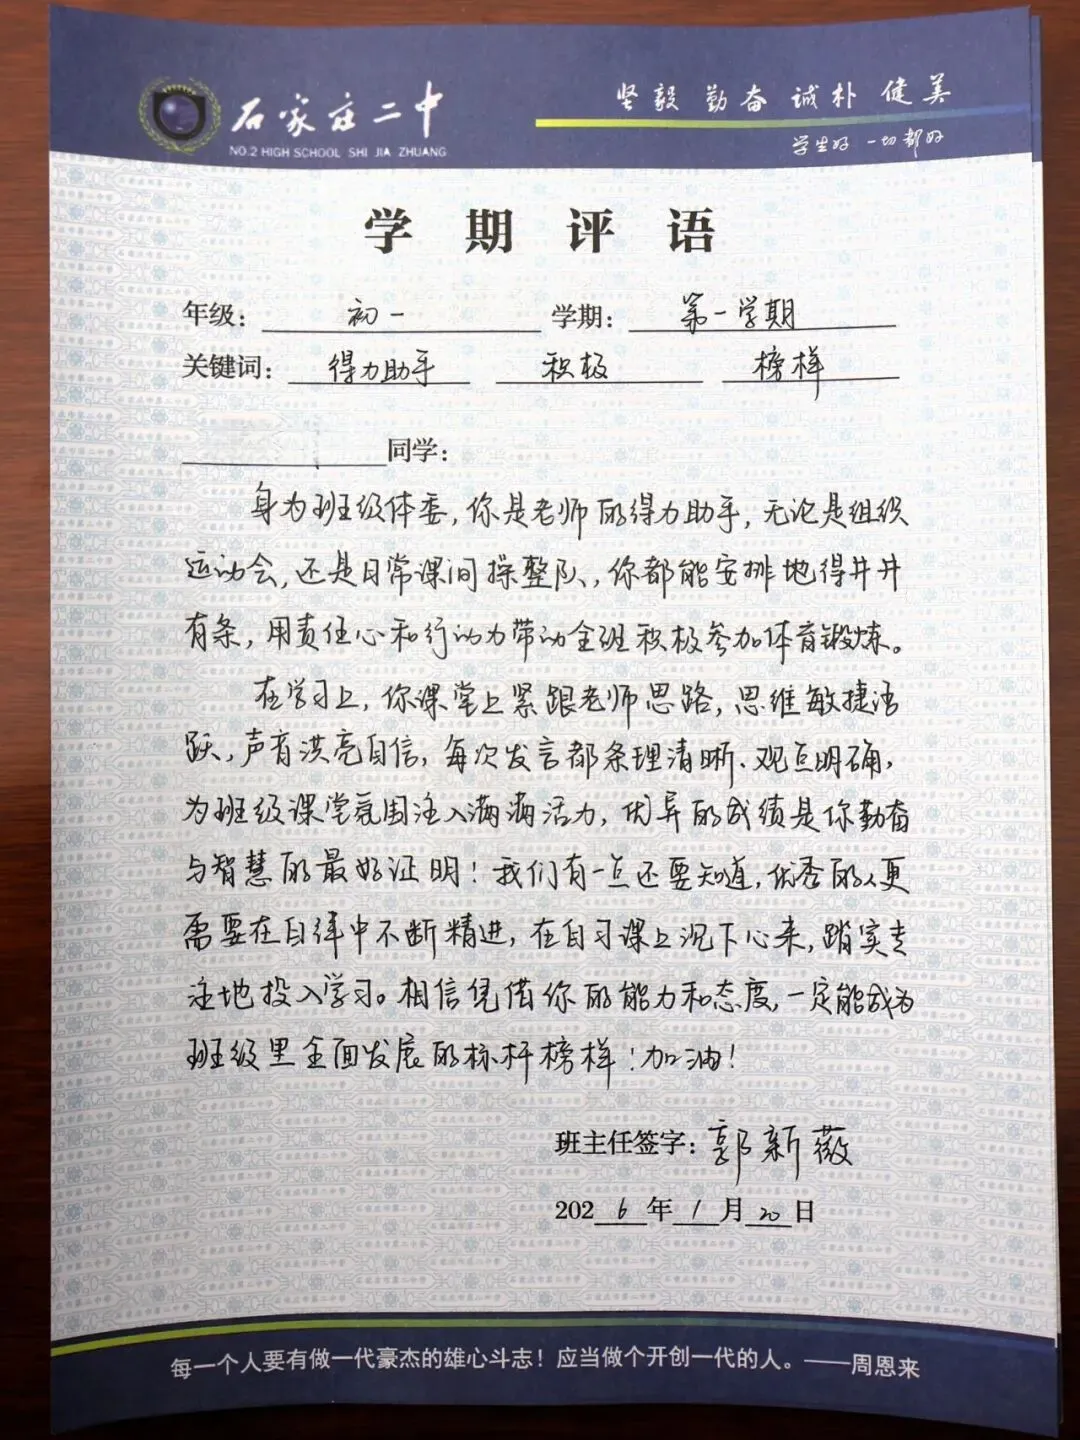 石家庄二中
NO.2 HIGH SCHOOL SHI JIA ZHUANG
坚毅 勤奋 诚朴 健美
学生好 一切都好
学期评语
年级: 初一 学期: 第一学期
关键词: 得力助手 积极 榜样
同学:
身为班级体委,你是老师的得力助手,无论是组织
运动会,还是日常课间操整队,你都能安排地得井井
有条,用责任心和行动力带动全班积极参加体育锻炼。
在学习上,你课堂上紧跟老师思路,思维敏捷活
跃,声音洪亮自信,每次发言都条理清晰、观点明确,
为班级课堂氛围注入满满活力,优异的成绩是你勤奋
与智慧的最好证明!我们有一点还要知道,优秀的人更
需要在自律中不断精进,在自习课上沉下心来,踏实专
注地投入学习。相信凭借你的能力和态度,一定能成为
班级里全面发展的标杆榜样!加油!
班主任签字: 郭新薇
2026年1月20日
每一个人要有做一代豪杰的雄心斗志!应当做个开创一代的人。——周恩来